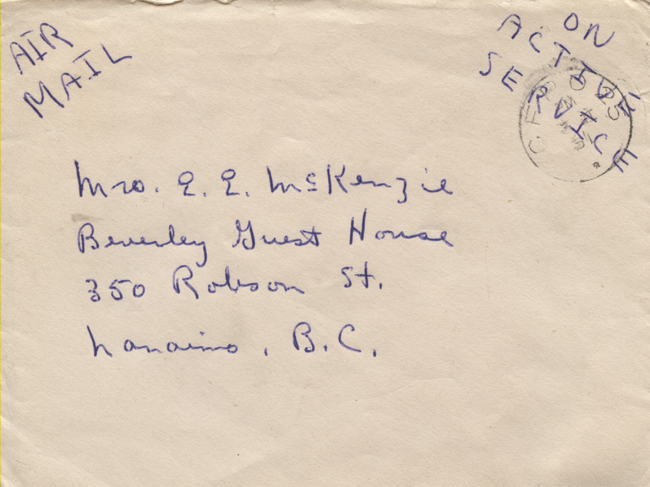 AIR
MAIL
ON
ACTIVE
SERVICE
Mrs. E. E. McKenzie
Beverley Guest House
350 Robson St.
Nanaimo, B.C.